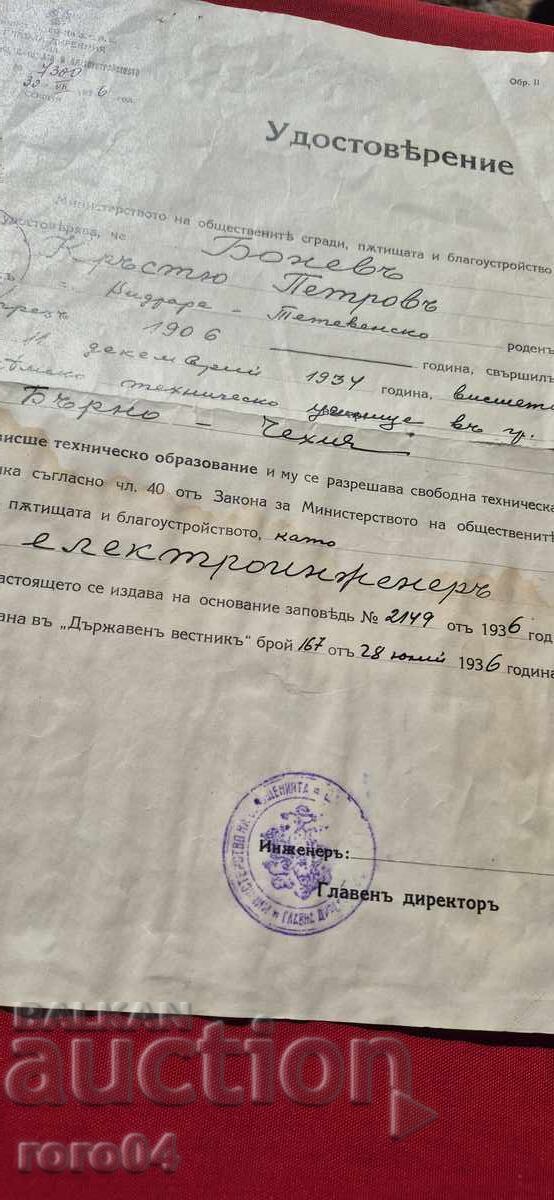 № 7300
30 VII 6 год.
София
Обр. II
Удостовѣрение
Министерството на общественитѣ сгради, пѫтищата и благоустройство
удостовѣрява, че Боневъ
Кръстю Петровъ
Видраре - Тетевенско роденъ
презъ 1906 година, свършилъ
11 декемврий 1934 година, висшето
техническо училище въ гр.
Бърно - Чехия
висше техническо образование и му се разрешава свободна техническа
съгласно чл. 40 отъ Закона за Министерството на общественитѣ
пѫтищата и благоустройството, като
електроинженеръ
настоящето се издава на основание заповѣдь № 2149 отъ 1936 год
въ „Държавенъ вестникъ" брой 167 отъ 28 юлий 1936 година
Инженеръ:
Главенъ директоръ
МИНИСТЕРСТВО НА
ГЛАВНА
BALKAN
auction
roro04